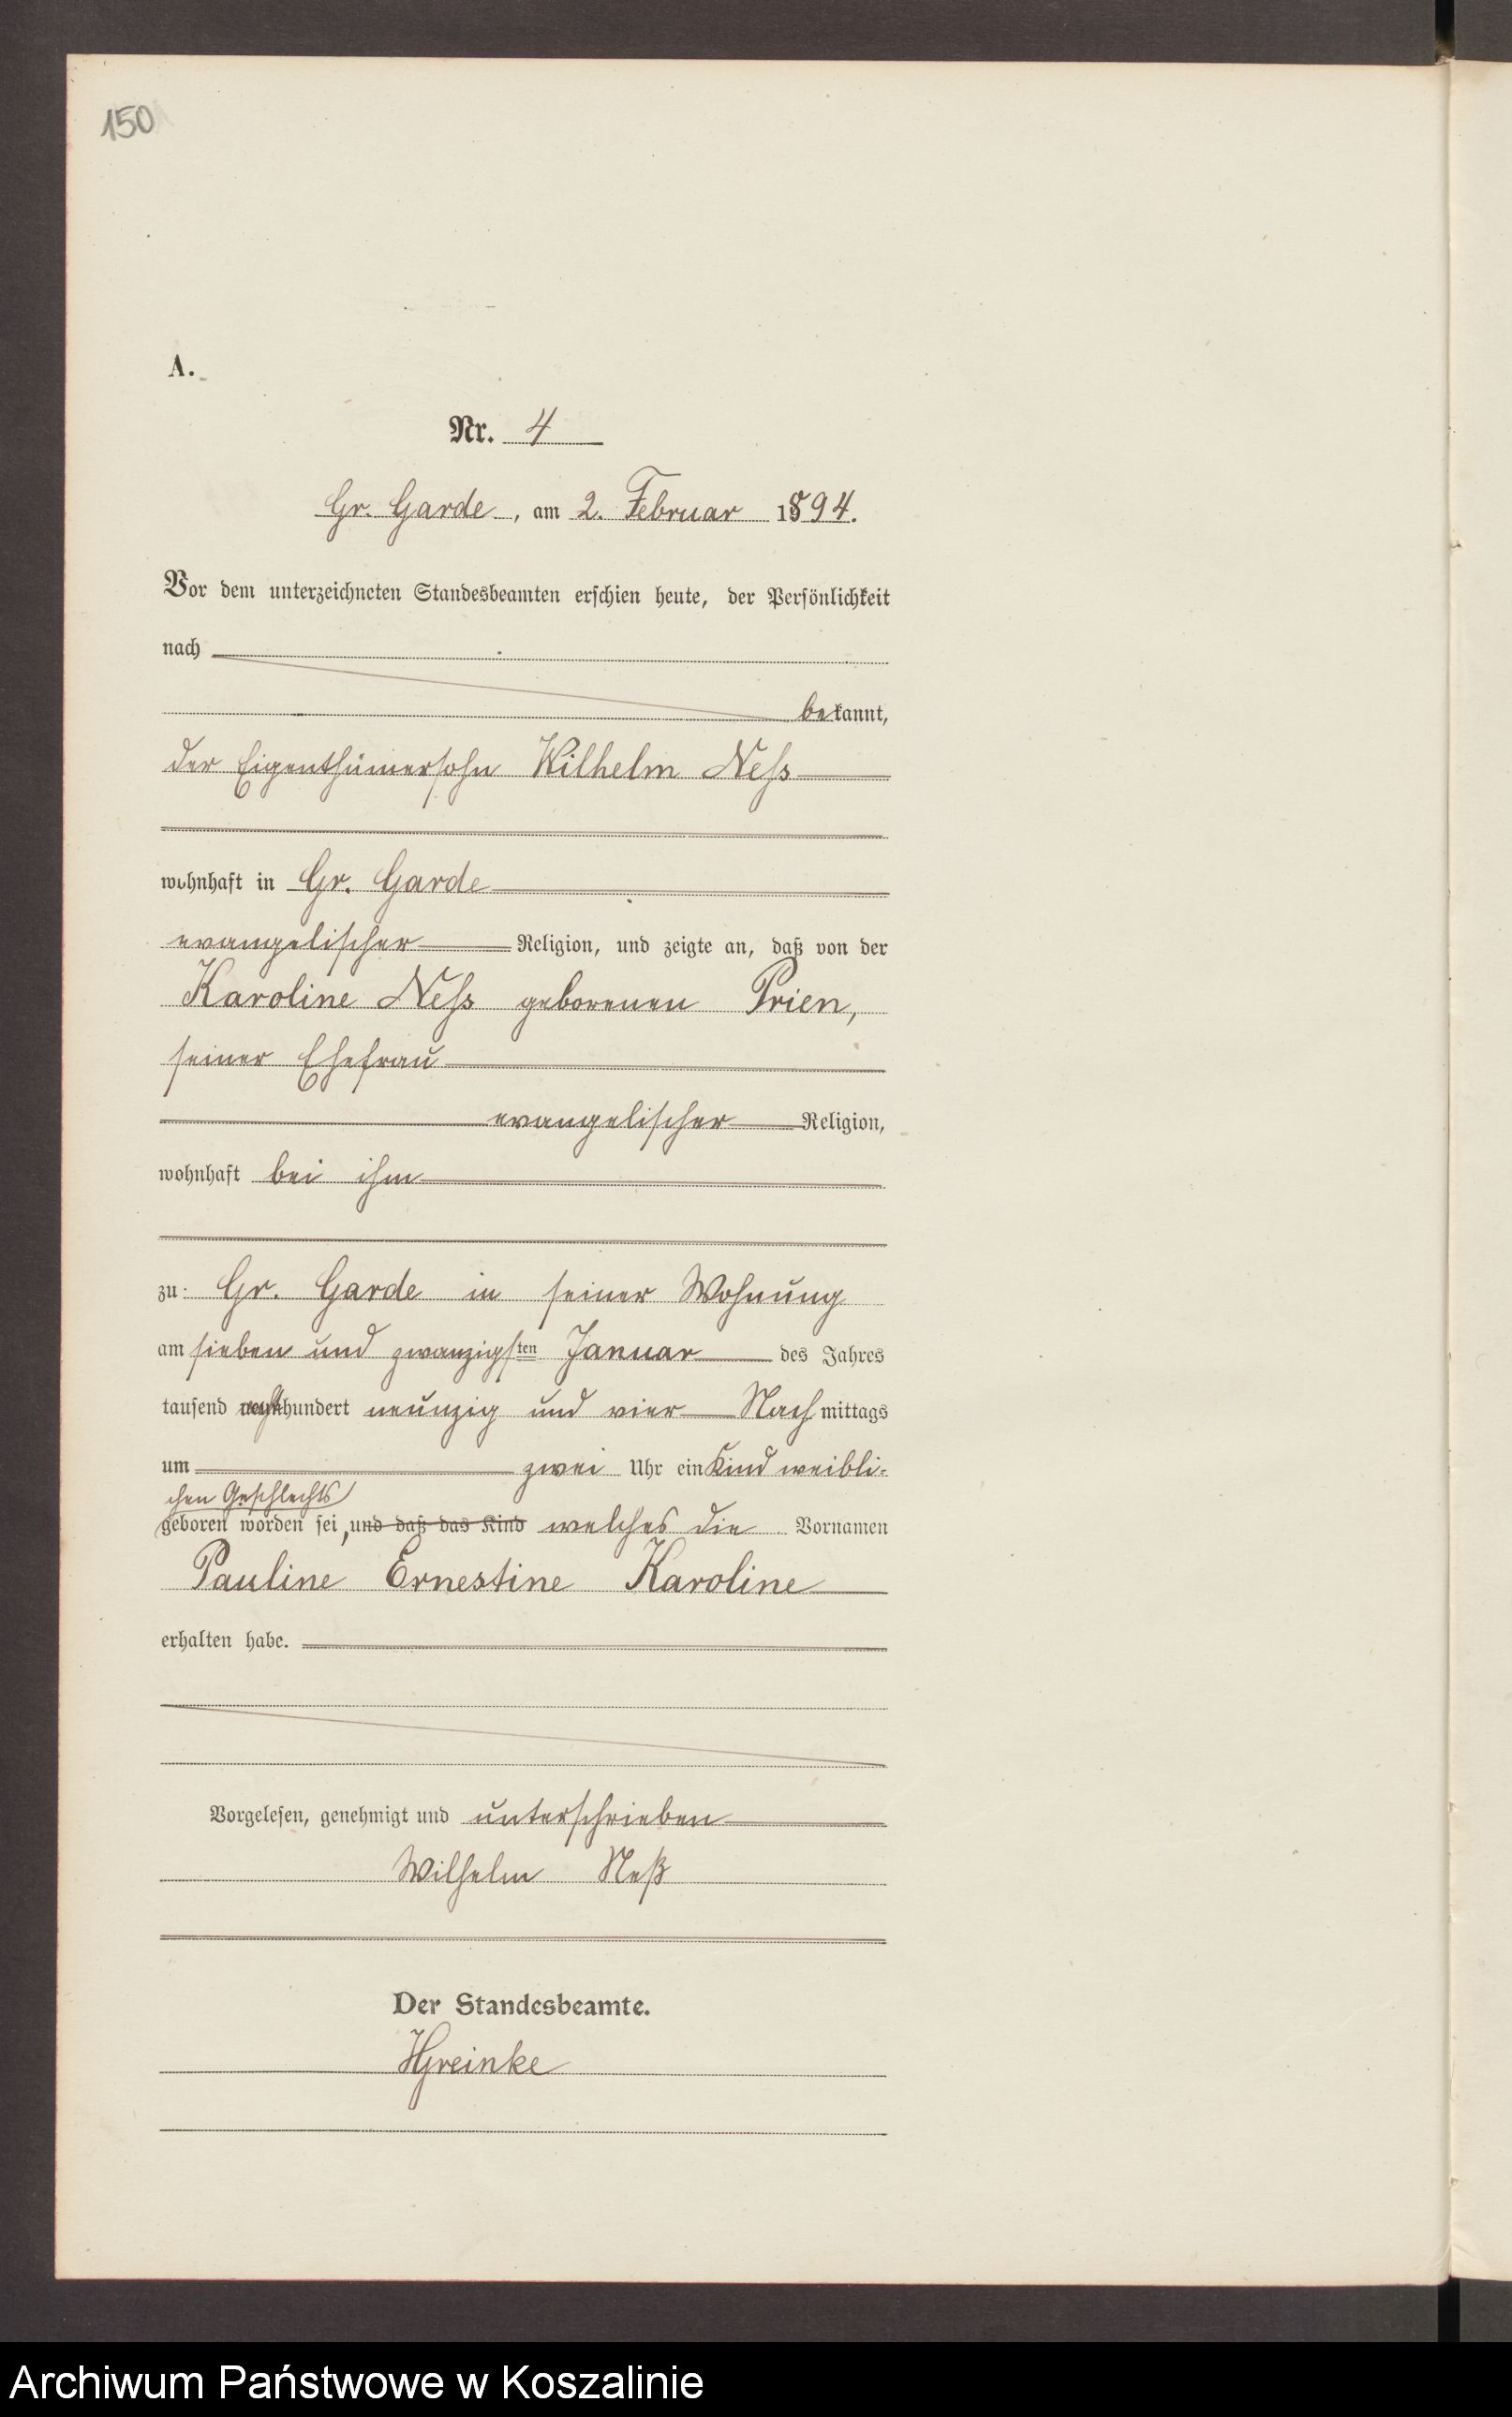 150
A.
Nr. 4
Gr. Garde, am 2. Februar 1894.
Vor dem unterzeichneten Standesbeamten erschien heute, der Persönlichkeit
nach
bekannt,
der Eigenthümersohn Wilhelm Neſs
wohnhaft in Gr. Garde
evangelischer Religion, und zeigte an, daß von der
Karoline Neſs geborenen Prien,
seiner Ehefrau
evangelischer Religion,
wohnhaft bei ihm
zu Gr. Garde in seiner Wohnung
am sieben und zwanzigsten Januar des Jahres
tausend achthundert neunzig und vier Nachmittags
um zwei Uhr ein Kind weibli-
chen Geschlechts
geboren worden sei, und daß das Kind welches die Vornamen
Pauline Ernestine Karoline
erhalten habe.
Vorgelesen, genehmigt und unterschrieben
Wilhelm Neß
Der Standesbeamte.
HGreinke
Archiwum Państwowe w Koszalinie